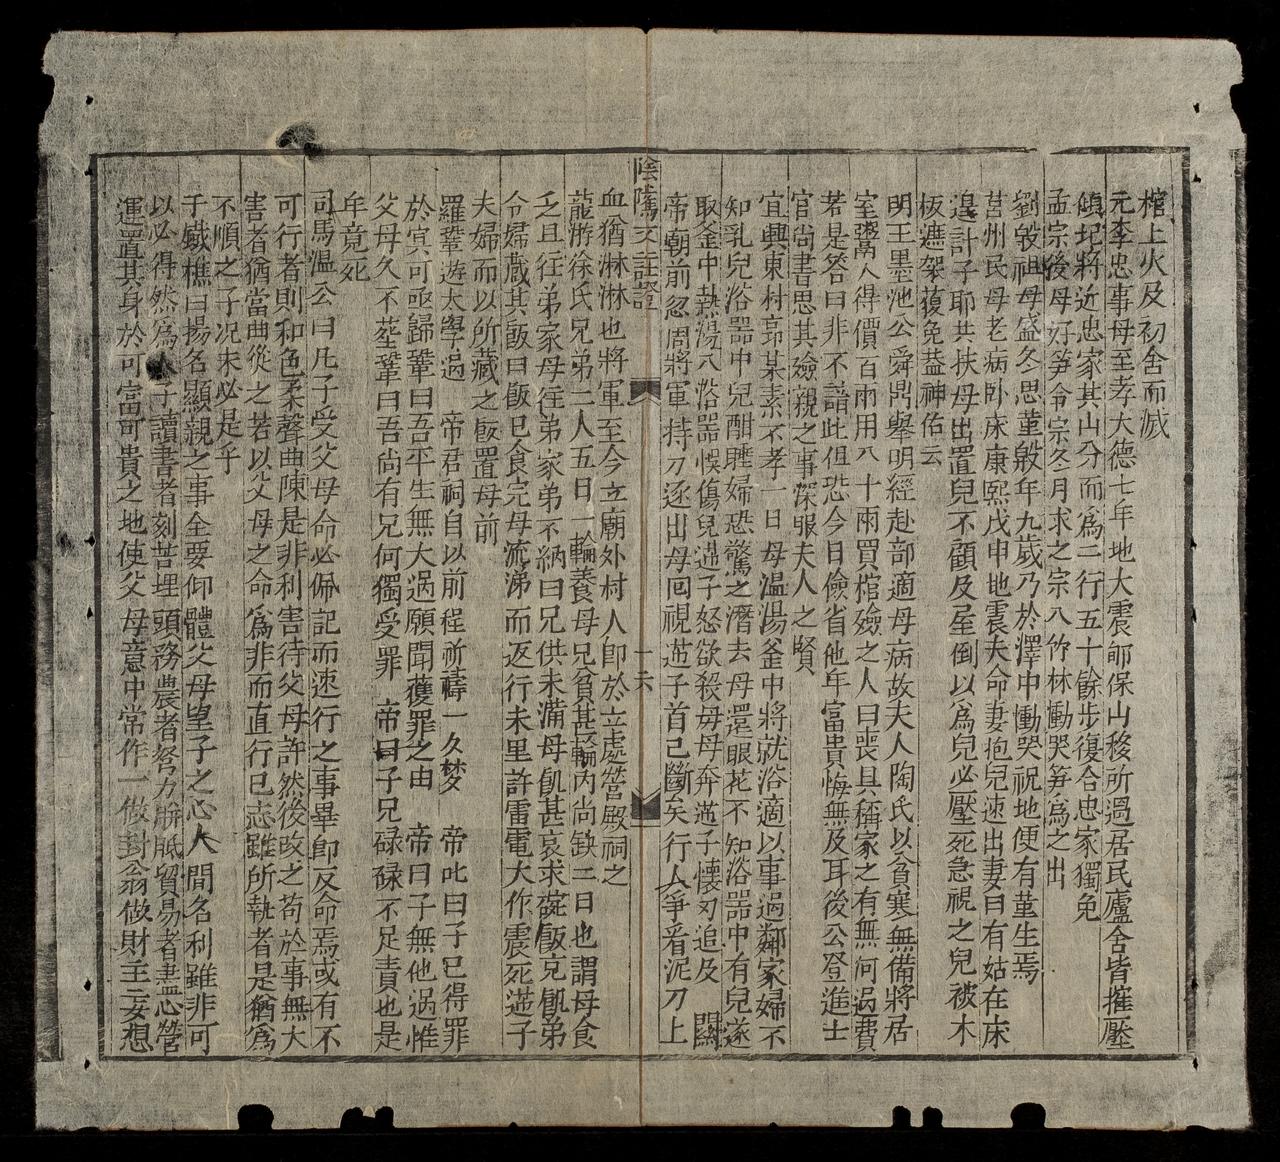 棺上火及初舍而滅
元李忠事母至孝大德七年地大震郇保山移所過居民廬舍皆摧壓
傾圮將近忠家其山分而為二行五十餘步復合忠家獨免
孟宗後母好笋令宗冬月求之宗入竹林慟哭笋為之出
劉殷祖母盛冬思菫殷年九歲乃於澤中慟哭祝地便有菫生焉
莒州民母老病卧床康熙戊申地震夫命妻抱兒速出妻曰有姑在床
遑計子耶共扶母出置兒不顧及屋倒以為兒必壓死急視之兒被木
板遮架獲免益神佑云
明王墨池公舜鼎舉明經赴部適母病故夫人陶氏以貧寒無備將居
室鬻人得價百兩用八十兩買棺殮之人曰喪具稱家之有無何過費
若是答曰非不諳此但恐今日儉省他年富貴悔無及耳後公登進士
官尚書思其殮親之事深服夫人之賢
宜興東村某素不孝一日母温湯釜中將就浴適以事過鄰家婦不
知乳兒浴器中兒酣睡婦恐驚之潛去母還眼花不知浴器中有兒遂
取釜中熱湯入浴器悞傷兒逆子怒欲殺母母奔逆子懷刃追及 關
帝廟前忽周將軍持刀逐出母回視逆子首已斷矣行人爭看泥刀上
陰隲文註證 十六
血猶淋淋也將軍至今立廟外村人即於立處營殿祠之
龍游徐氏兄弟二人五日一輪養母兄貧甚輪內尚缺二日也謂母食
乏且往弟家母往弟家弟不納曰兄供未滿母飢甚哀求碗飯充飢弟
令婦藏其飯曰飯已食完母流涕而返行未里許雷電大作震死逆子
夫婦而以所藏之飯置母前
羅鞏遊大學過 帝君祠自以前程祈禱一久梦 帝叱曰子已得罪
於冥可亟歸鞏曰吾平生無大過願聞獲罪之由 帝曰子無他過惟
父母久不塟鞏曰吾尚有兄何獨受罪 帝曰子兄碌碌不足責也是
年竟死
司馬温公曰凡子受父母命必佩記而速行之事畢即反命焉或有不
可行者則和色柔聲曲陳是非利害待父母許然後改之苟於事無大
害者猶當曲從之若以父母之命為非而直行已志雖所執者是猶為
不順之子况未必是乎
于鐵樵曰揚名顯親之事全要仰體父母望子之心人間名利雖非可
以必得然為子讀書者刻苦埋頭務農者努力胼胝貿易者盡心營
運置其身於可富可貴之地使父母意中常作一做封翁做財主妄想